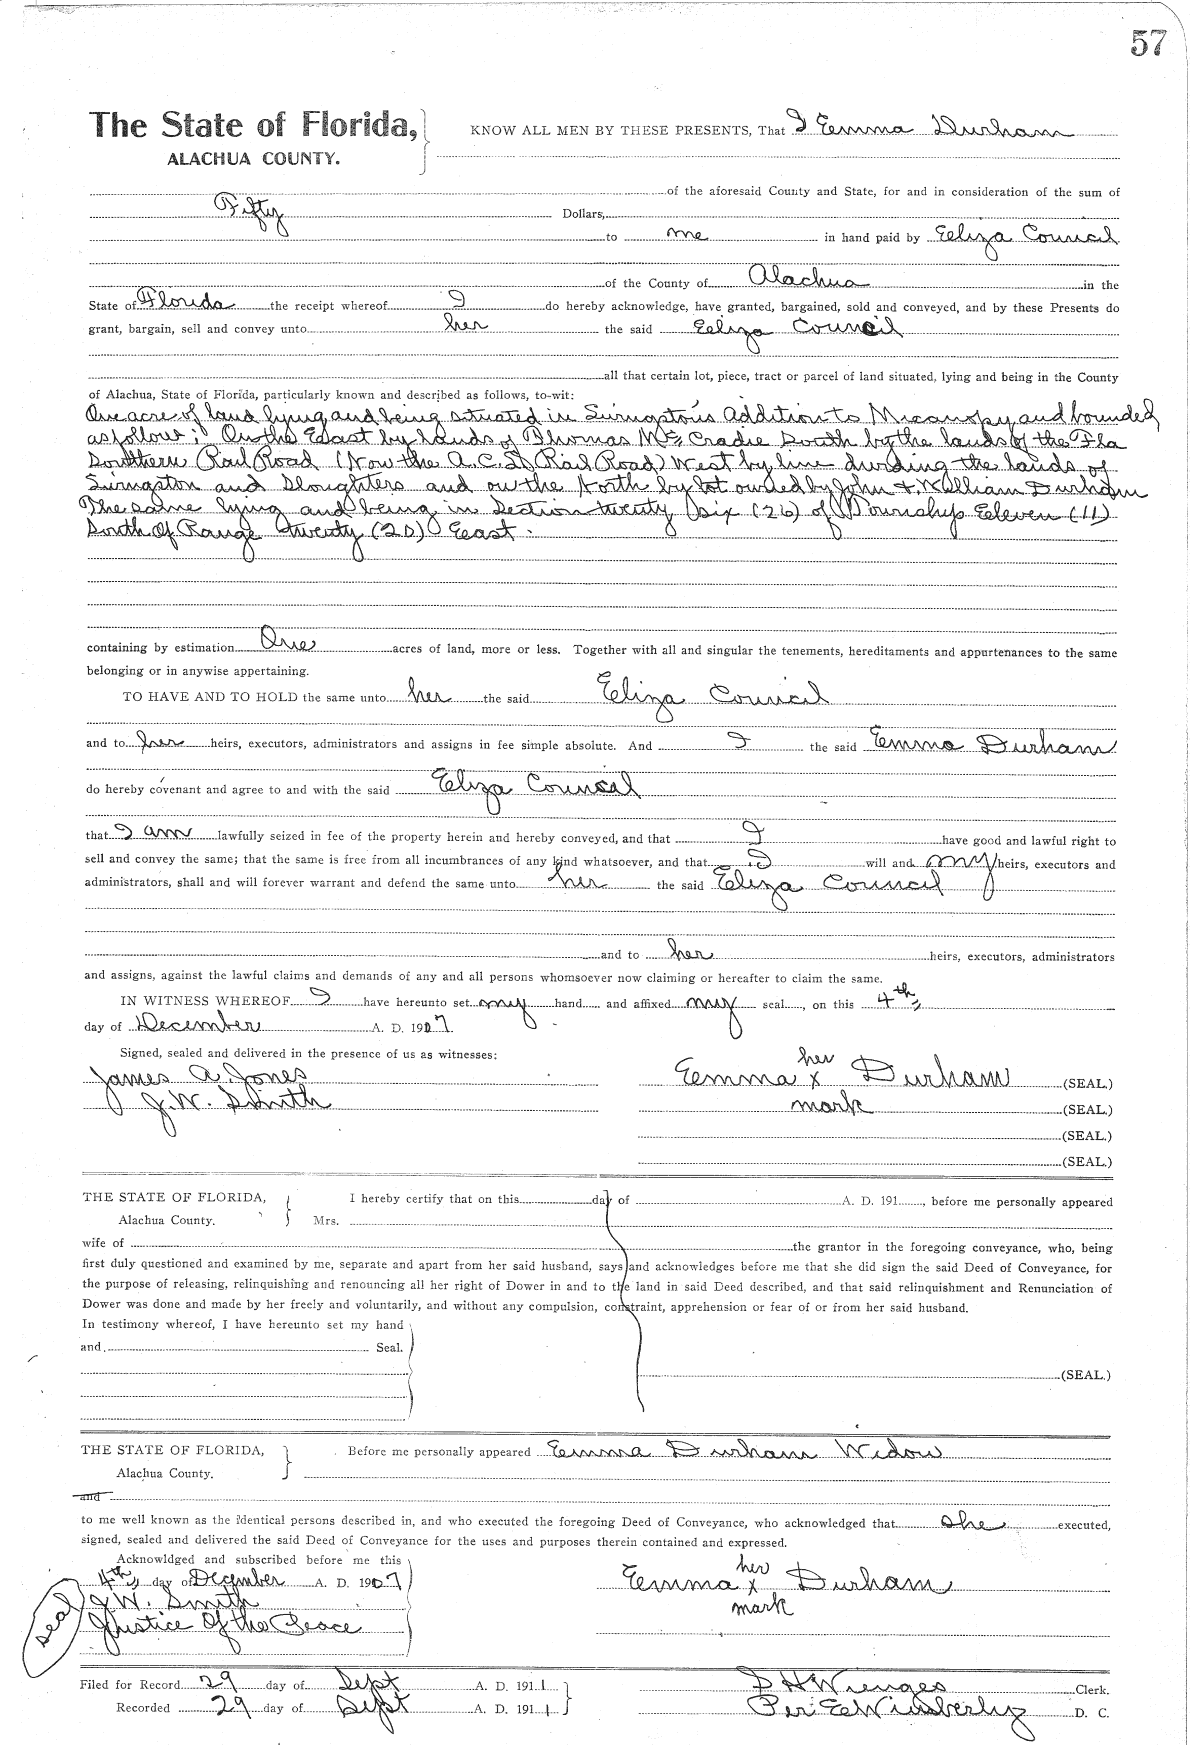 57
The State of Florida,
ALACHUA COUNTY.
KNOW ALL MEN BY THESE PRESENTS, That I Emma Durham
of the aforesaid County and State, for and in consideration of the sum of
Fifty Dollars,
to me in hand paid by Eliza Council
of the County of Alachua in the
State of Florida the receipt whereof I do hereby acknowledge, have granted, bargained, sold and conveyed, and by these Presents do
grant, bargain, sell and convey unto her the said Eliza Council
all that certain lot, piece, tract or parcel of land situated, lying and being in the County
of Alachua, State of Florida, particularly known and described as follows, to-wit:
One acre of land lying and being situated in Addition to Micanopy and bounded
as follow; On the East by lands of Thomas Mc Cradie South by the lands of the Fla
Southern Rail Road (Now the A.C.L Rail Road) West by line dividing the lands of
and Sloughters and on the North by lot owned by John & William Durham
The same lying and being in Section twenty six (26) of Township Eleven (11)
South Of Range twenty (20) East.
containing by estimation One acres of land, more or less. Together with all and singular the tenements, hereditaments and appurtenances to the same
belonging or in anywise appertaining.
TO HAVE AND TO HOLD the same unto her the said Eliza Council
and to her heirs, executors, administrators and assigns in fee simple absolute. And I the said Emma Durham
do hereby covenant and agree to and with the said Eliza Council
that I am lawfully seized in fee of the property herein and hereby conveyed, and that I have good and lawful right to
sell and convey the same; that the same is free from all incumbrances of any kind whatsoever, and that I will and my heirs, executors and
administrators, shall and will forever warrant and defend the same unto her the said Eliza Council
and to her heirs, executors, administrators
and assigns, against the lawful claims and demands of any and all persons whomsoever now claiming or hereafter to claim the same.
IN WITNESS WHEREOF I have hereunto set my hand and affixed my seal, on this 4th
day of December A. D. 1907.
Signed, sealed and delivered in the presence of us as witnesses:
James A. Jones
J.W. Smith
her
Emma x Durham (SEAL.)
mark (SEAL.)
(SEAL.)
(SEAL.)
THE STATE OF FLORIDA,
Alachua County.
I hereby certify that on this day of A. D. 191 , before me personally appeared
Mrs.
wife of the grantor in the foregoing conveyance, who, being
first duly questioned and examined by me, separate and apart from her said husband, says and acknowledges before me that she did sign the said Deed of Conveyance, for
the purpose of releasing, relinquishing and renouncing all her right of Dower in and to the land in said Deed described, and that said relinquishment and Renunciation of
Dower was done and made by her freely and voluntarily, and without any compulsion, constraint, apprehension or fear of or from her said husband.
In testimony whereof, I have hereunto set my hand
and Seal.
(SEAL.)
THE STATE OF FLORIDA,
Alachua County.
Before me personally appeared Emma Durham Widow
and
to me well known as the identical persons described in, and who executed the foregoing Deed of Conveyance, who acknowledged that she executed,
signed, sealed and delivered the said Deed of Conveyance for the uses and purposes therein contained and expressed.
Acknowldged and subscribed before me this
4th day of December A. D. 1907
J.W. Smith
Justice Of the Peace
seal
her
Emma x Durham
mark
Filed for Record 29 day of Sept A. D. 1911
Recorded 29 day of Sept A. D. 1911
S H Wienges Clerk.
Per E Wimberly D. C.